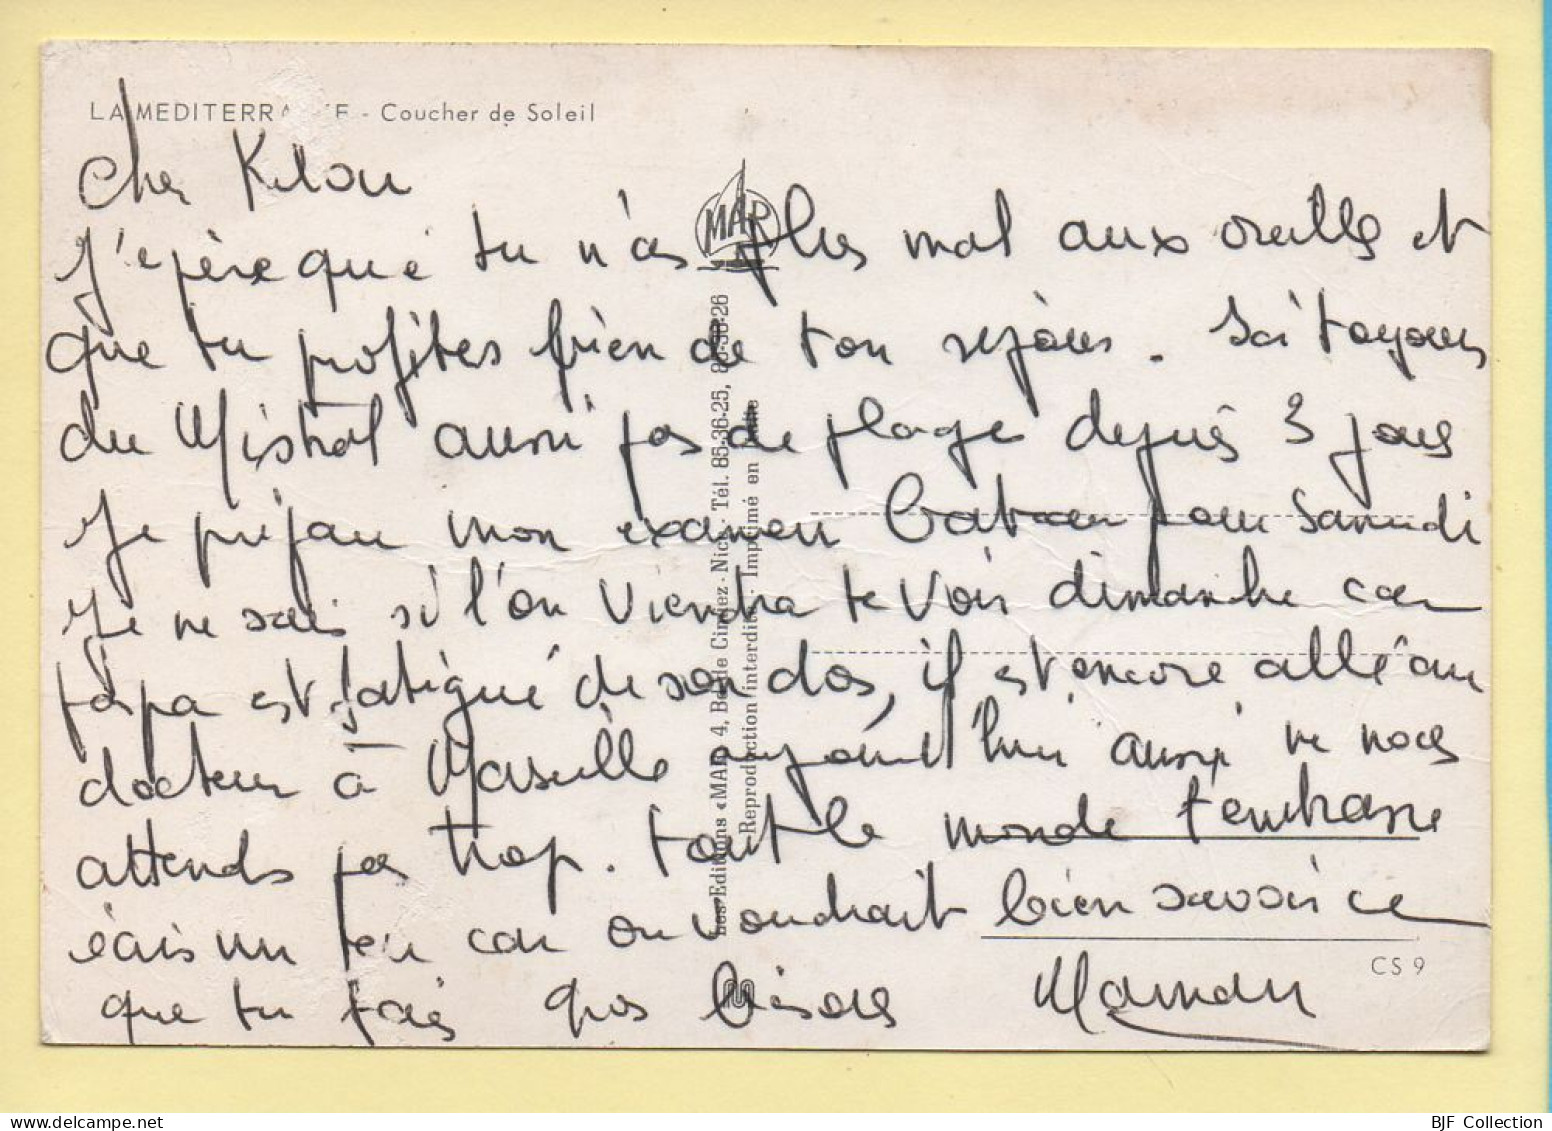 LA MEDITERRANEE - Coucher de Soleil
Cher Kilou
J'espère que tu n'as plus mal aux oreilles et
que tu profites bien de ton séjour. Ici toujours
du Mistral aussi pas de plage depuis 3 jours
Je prépare mon examen bateau pour Samedi
Je ne sais si l'on viendra te voir dimanche car
papa est fatigué de son dos, il est encore allé au
docteur à Marseille aujourd'hui aussi ne nous
attends pas trop. tout le monde t'embrasse
écris un peu car on voudrait bien savoir ce
que tu fais gros bisous Maman
MAR
Les Editions «MAR» 4, Bd de Cimiez - Nice - Tél. 85-36-25, 85-36-26
Reproduction interdite - Imprimé en Italie
CS 9
BJF Collection